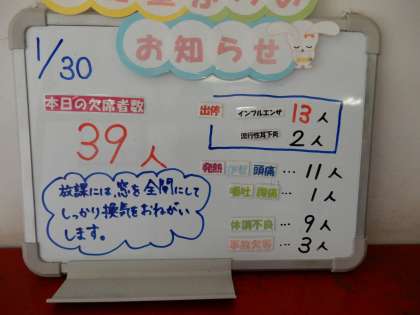 お知らせ
1/30
本日の欠席者数
39人
放課には、窓を全開にして
しっかり換気をおねがい
します。
出停 インフルエンザ 13人
流行性耳下炎 2人
発熱 頭痛 … 11人
嘔吐 腹痛 … 1人
体調不良 … 9人
事故欠等 … 3人